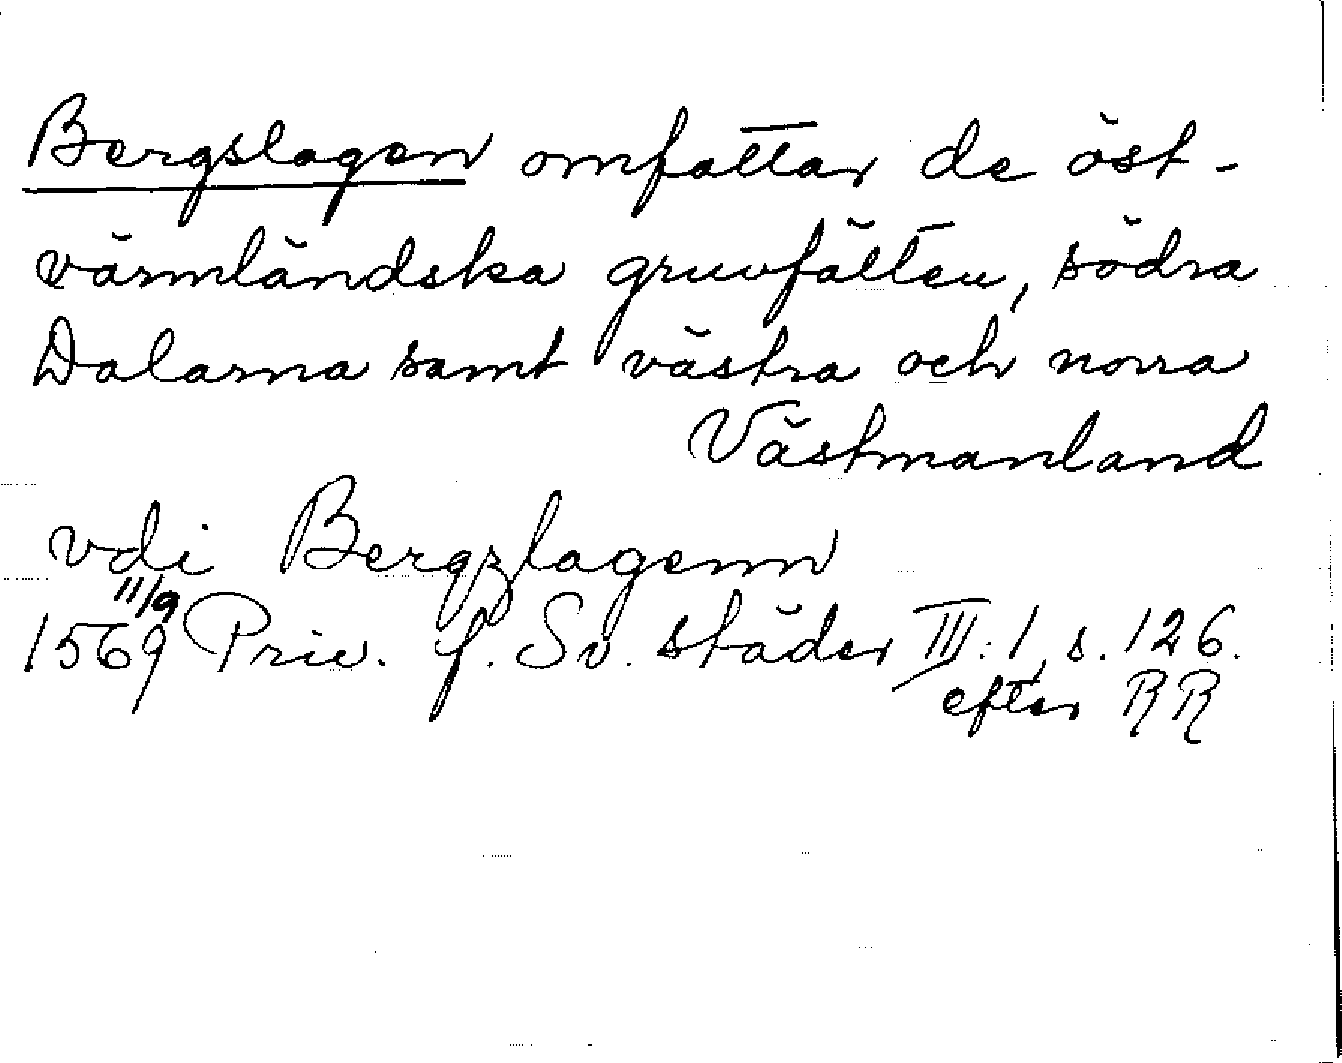 Bergslagen omfattar de öst-
värmländska gruvfälten, södra
Dalarna samt västra och norra
Västmanland
vdi Bergzlagenn
11/9
1569 Priv. f. Sv. städer III:1, s. 126.
efter RR